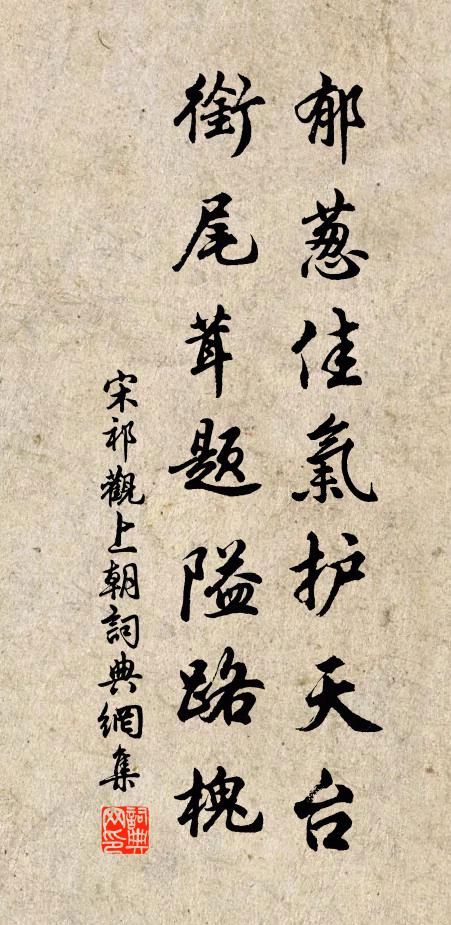 郁葱佳氣护天台
銜尾茸题隘路槐
宋祁觀上朝詞典網集
詞典網印